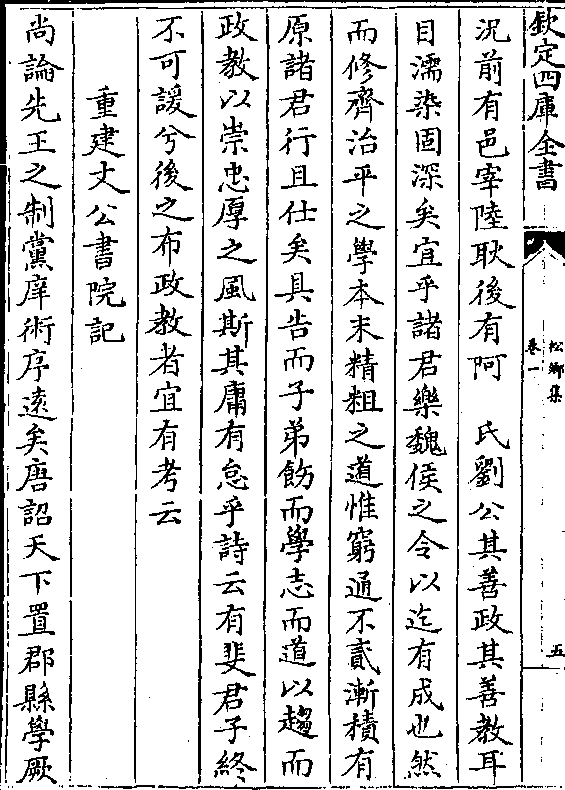 欽定四庫全書
松鄉集
卷一
五
況前有邑宰陸耿後有阿　氏劉公其善政其善教耳
目濡染固深矣宜乎諸君樂魏侯之令以迄有成也然
而修齊治平之學本末精粗之道惟窮通不貳漸積有
原諸君行且仕矣具告而子弟飭而學志而道以趨而
政教以崇忠厚之風斯其庸有怠乎詩云有斐君子終
不可諼兮後之布政教者宜有考云
重建文公書院記
尚論先王之制黨庠術序逺矣唐詔天下置郡縣學厥